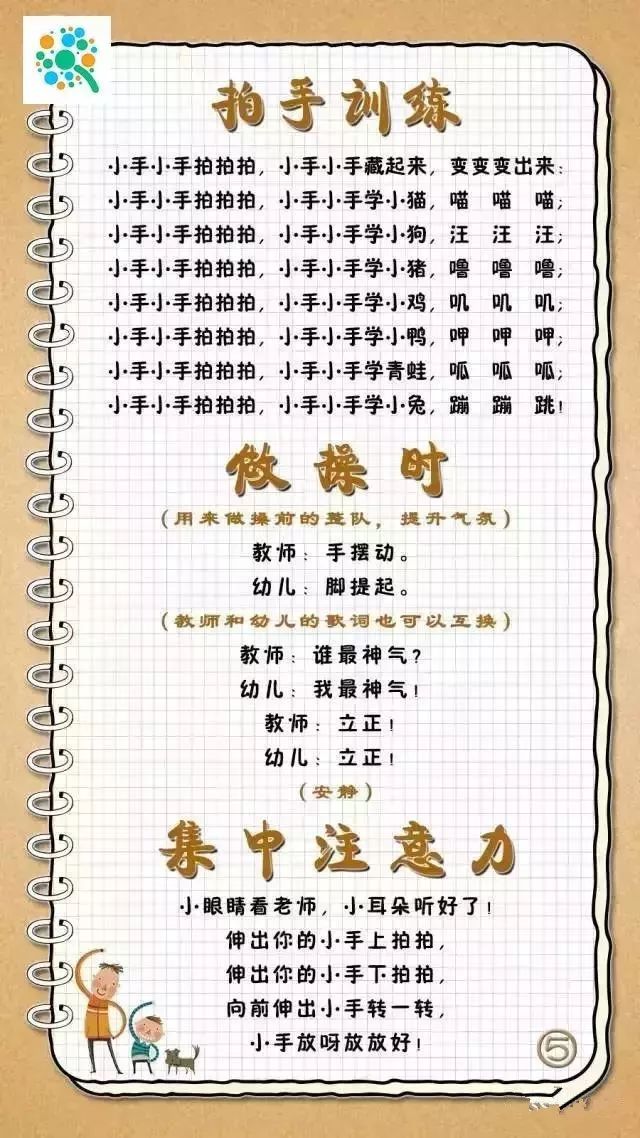 拍手训练
小手小手拍拍拍，小手小手藏起来，变变变出来；
小手小手拍拍拍，小手小手学小猫，喵 喵 喵；
小手小手拍拍拍，小手小手学小狗，汪 汪 汪；
小手小手拍拍拍，小手小手学小猪，噜 噜 噜；
小手小手拍拍拍，小手小手学小鸡，叽 叽 叽；
小手小手拍拍拍，小手小手学小鸭，呷 呷 呷；
小手小手拍拍拍，小手小手学青蛙，呱 呱 呱；
小手小手拍拍拍，小手小手学小兔，蹦 蹦 跳！
做操时
（用来做操前的整队，提升气氛）
教师：手摆动。
幼儿：脚提起。
（教师和幼儿的歌词也可以互换）
教师：谁最神气？
幼儿：我最神气！
教师：立正！
幼儿：立正！
（安静）
集中注意力
小眼睛看老师，小耳朵听好了！
伸出你的小手上拍拍，
伸出你的小手下拍拍，
向前伸出小手转一转，
小手放呀放放好！
5